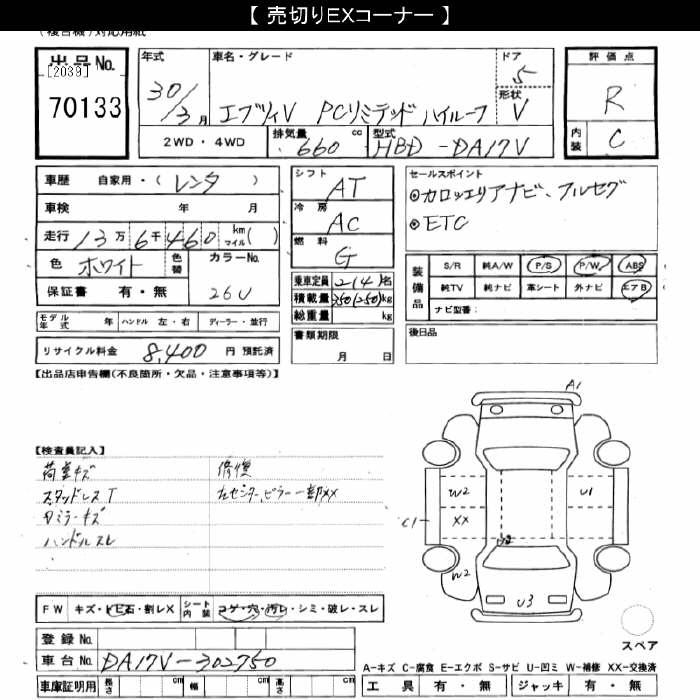 【 売切りEXコーナー 】
(複合機)対応用紙
出品No. [2039] 70133
年式 30/3月
車名・グレード エブリィV PCリミテッド ハイルーフ
ドア 5
形状 V
評価点 R
内装 C
2WD・4WD
排気量 660 cc
型式 HBD-DA17V
車歴 自家用・( レンタ )
車検 年 月
走行 13万6千460 km マイル( )
色 ホワイト 色替 カラーNo. 26U
保証書 有・無
モデル年式 年 ハンドル 左・右 ディーラー・並行
リサイクル料金 8,400 円 預託済
シフト AT
冷房 AC
燃料 G
乗車定員 2(4)名
積載量 350(250)kg
総重量 kg
書類期限
月 日
セールスポイント
◎カロッツェリアナビ、フルセグ
◎ETC
装備品 S/R 純A/W P/S P/W ABS
純TV 純ナビ 革シート 外ナビ エアB
ナビ型番:
後日品
【出品店申告欄(不良箇所・欠品・注意事項等)】
【検査員記入】
荷室キズ
スタッドレスT
Rミラーキズ
ハンドルスレ
修復
左センターピラー一部XX
A1
W2
XX
C1
U1
U2
W2
U3
スペア
FW キズ・トビ石・割レX シート内装 コゲ・穴・汚レ・シミ・破レ・スレ
登録No.
車台No. DA17V-302750
車庫証明用 長さ cm 幅 cm 高さ cm
A-キズ C-腐食 E-エクボ S-サビ U-凹ミ W-補修 XX-交換済
工具 有・無 ジャッキ 有・無